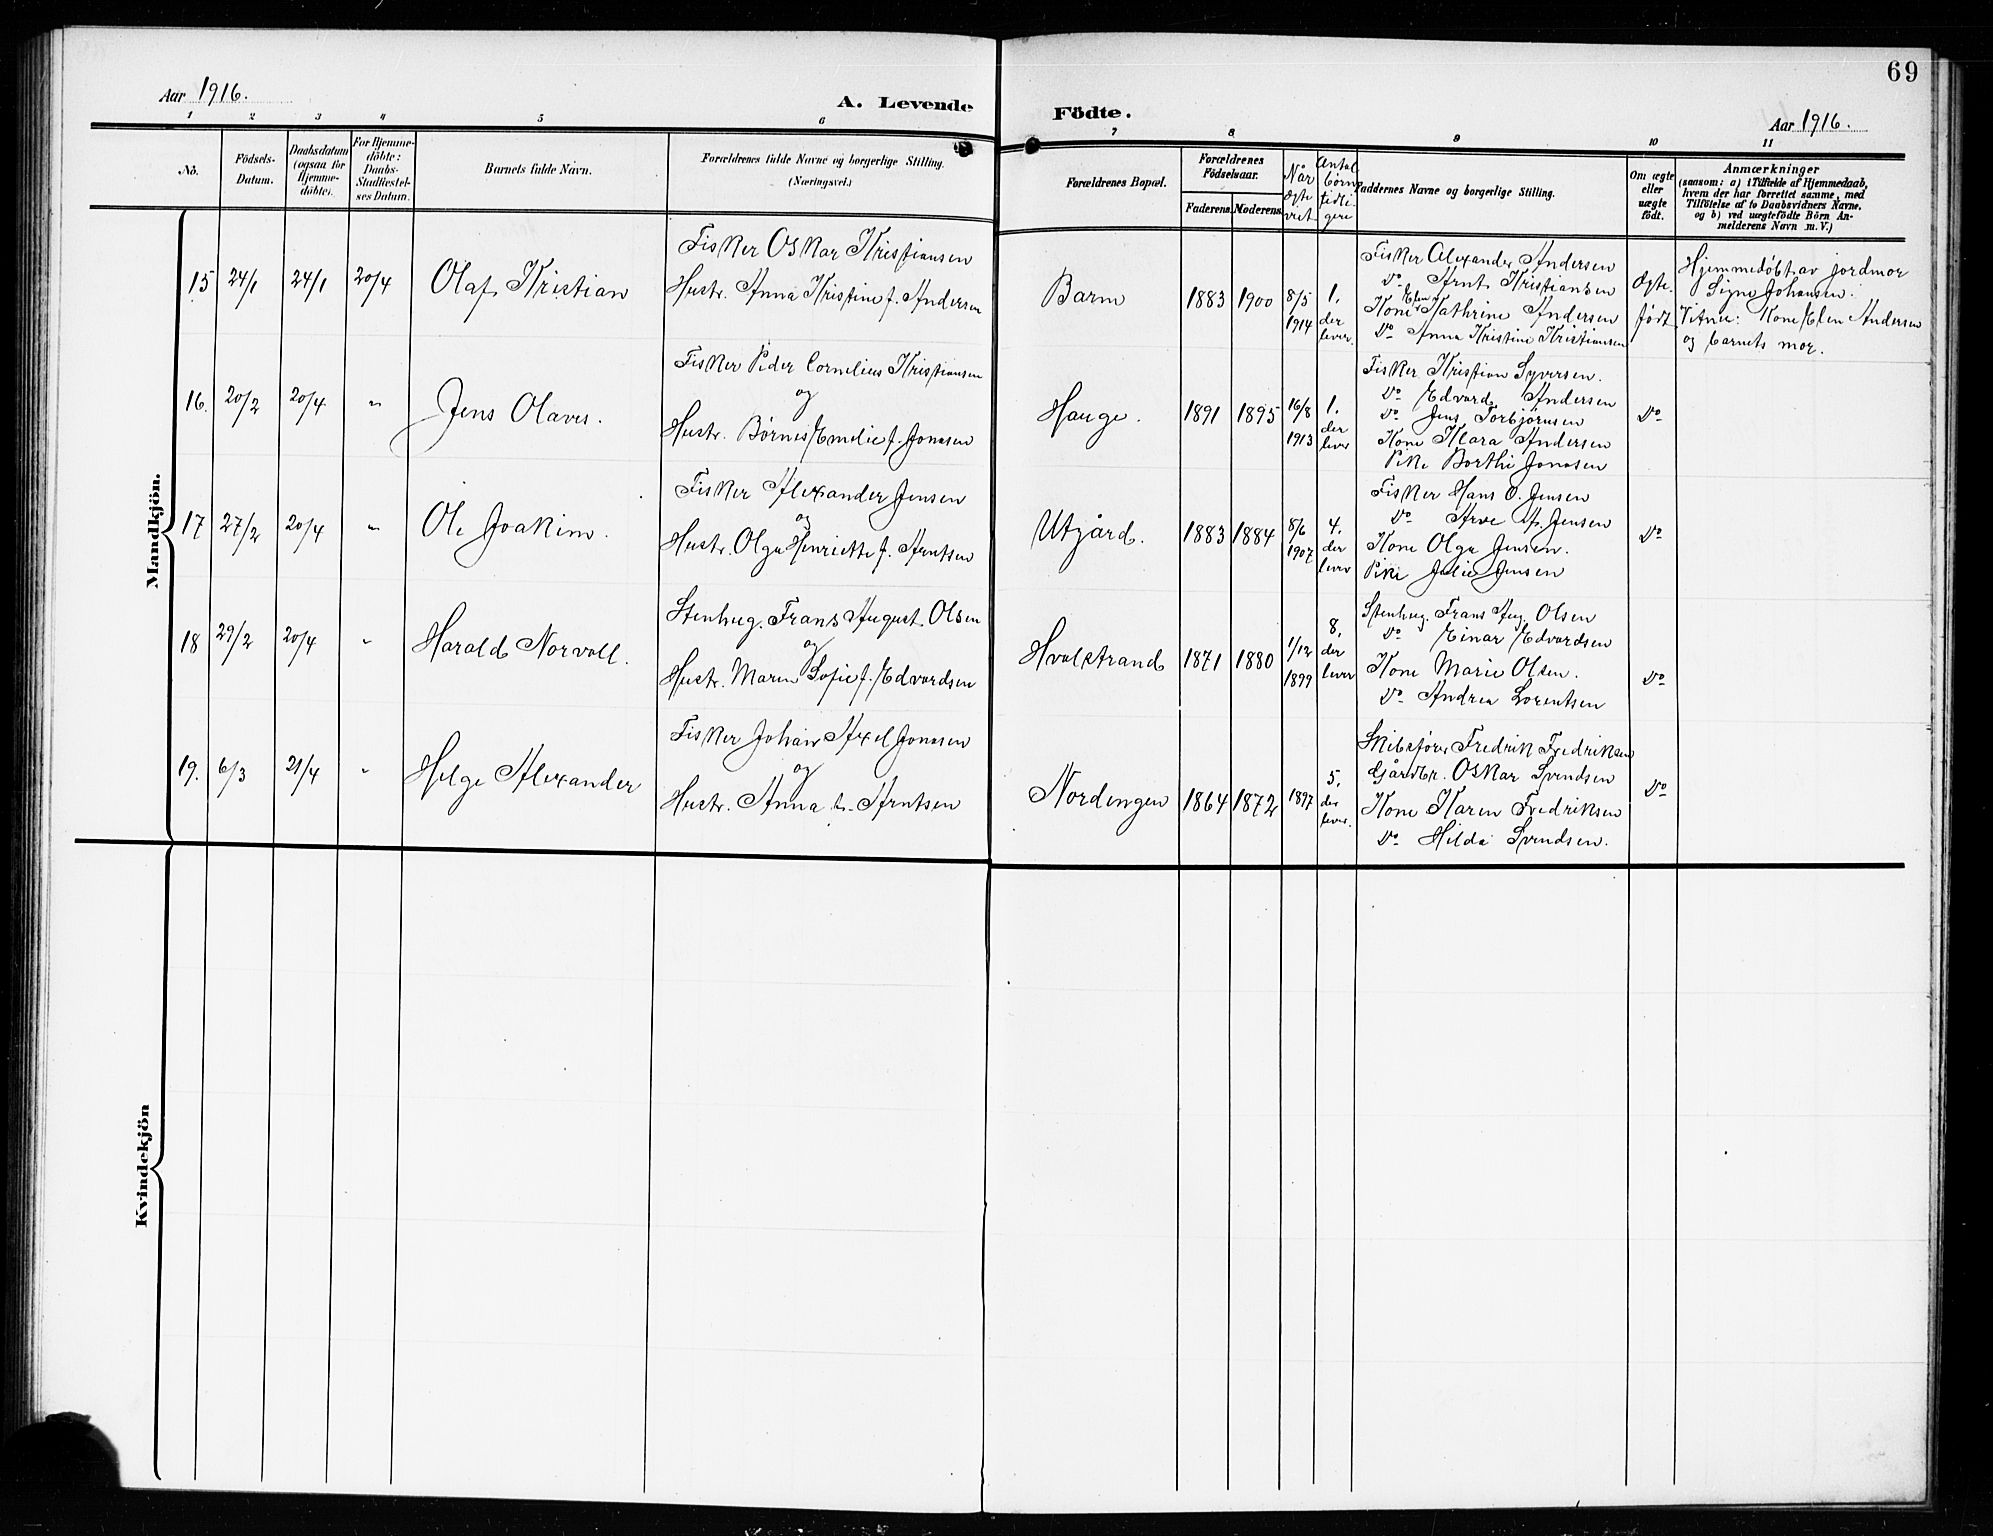 69
Aar 1916.
A. Levende Födte.
Aar 1916.
1 2 3 4 5 6 7 8 9 10 11
No.
Födsels-Datum.
Daabsdatum (ogsaa for Hjemme-döbte).
For Hjemme-döbte: Daabs-Stadfæstel-ses Datum.
Barnets fulde Navn.
Forældrenes fulde Navne og borgerlige Stilling. (Næringsvei.)
Forældrenes Bopæl.
Forældrenes Födselsaar.
Faderens. Moderens.
Når ægte viet.
Antal børn tidli-gere
Faddernes Navne og borgerlige Stilling.
Om ægte eller uægte födt.
Anmærkninger
(saasom: a) i Tilfælde af Hjemmedaab, hvem der har forrettet samme, med Tilföielse af to Daabsvidners Navne. og b) ved uægtefödte Börn An-melderens Navn m. V.)
Mandkjön.
15 24/1 24/1 20/4 Olaf Kristian
Fisker Oskar Kristiansen
Hustr. Anna Kristine f. Andersen
Barm 1883 1900 8/5 1914 1. der lever.
Fisker Alexander Andersen
Do Arnt Kristiansen
Kone Elen Kathrine Andersen
Do Anna Kristine Kristiansen
Ægte født
Hjemmedøbt av jordmor
Signe Johansen.
Vitner: Kone Elen Andersen
og barnets mor.
16. 20/2 20/4 " Jens Olaves.
Fisker Peder Cornelius Kristiansen
og
Hustr. Børnes Emelie f. Jonasen
Hauge. 1891 1895 16/8 1913 1. der lever
Fisker Kristian Syversen.
Do Edvard Andersen
Do Jens Torbjørnsen
Kone Klara Andersen
Pike Borthe Jonasen
Do
17 27/2 20/4 " Ole Joakim.
Fisker Alexander Jensen
og
Hustr. Olga Henriette f. Arntsen
Utgård. 1883 1884 8/6 1907 4. der lever
Fisker Hans O. Jensen
Do Arve A. Jensen
Kone Olga Jensen.
Pike Julie Jensen
Do
18 29/2 20/4 " Harald Norvall.
Stenhug. Frans August Olsen
og
Hustr. Maren Sofie f. Edvardsen
Hvalstrand 1871 1880 1/12 1899 8. der lever
Stenhug. Frans Aug. Olsen
Do Einar Edvardsen
Kone Marie Olsen.
Do Andrea Lorentsen
Do
19. 6/3 21/4 " Helge Alexander
Fisker Johan Axel Jonasen
og
Hustr. Anna f. Arntsen
Nordengen 1864 1872 1897 5. der lever.
Skibsfører Fredrik Fredriksen
Gårdbr. Oskar Svendsen
Kone Karen Fredriksen
Do Hilda Svendsen.
Do
Kvindekjön